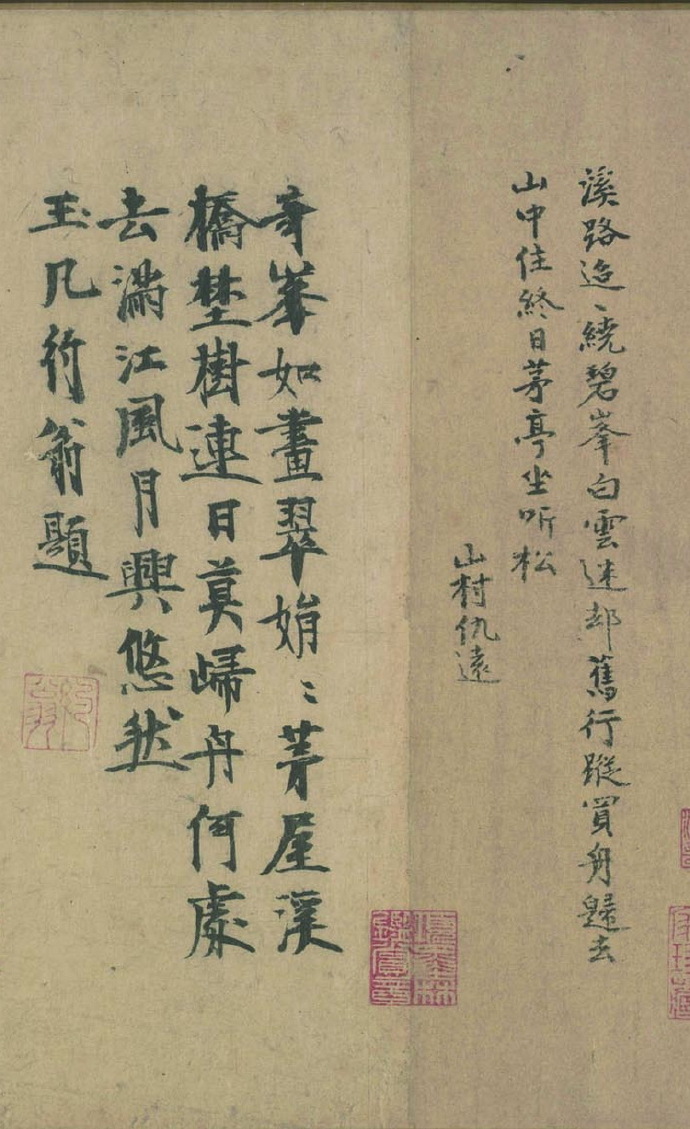 溪路迢〻繞碧峯白雲迷却舊行蹤買舟歸去
山中住終日茅亭坐听松
山村仇遠
項墨林鑑賞章
奇峯如畫翠娟〻茅屋溪
橋埜樹連日莫歸舟何處
去滿江風月興悠然
玉几翁題